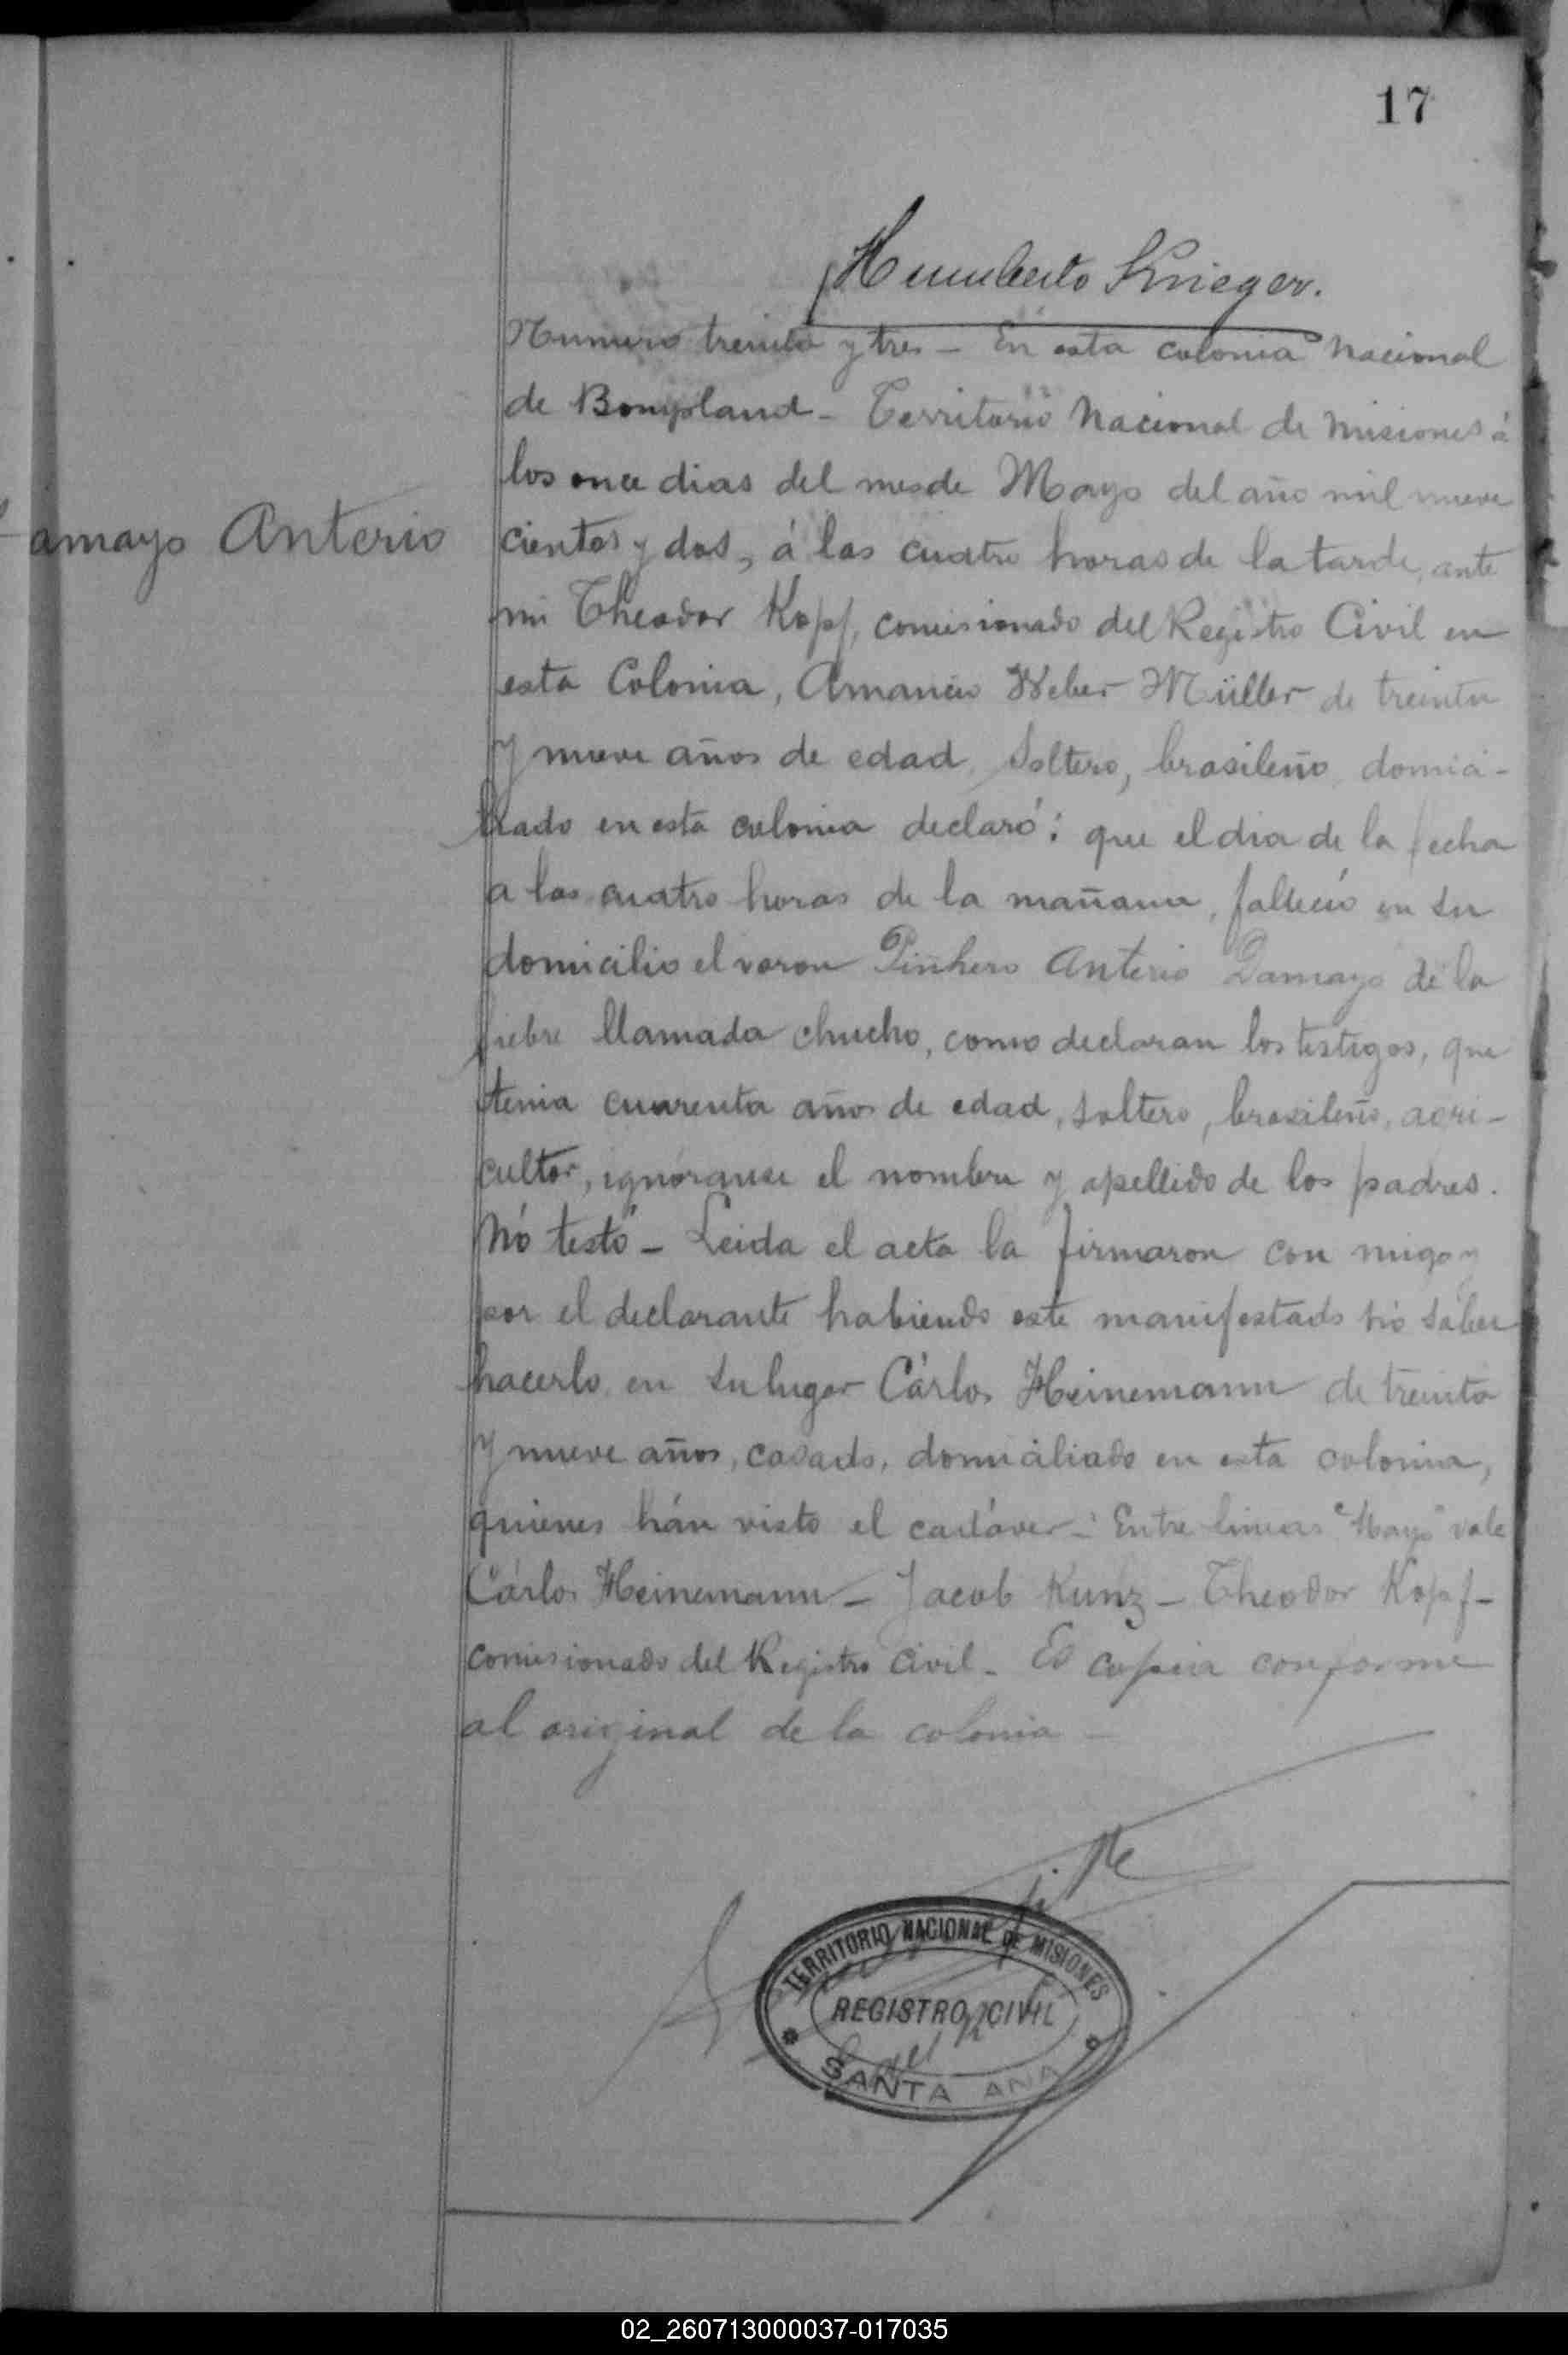 17
Humberto Krieger.
Numero treinta y tres - En esta colonia Nacional
de Bompland - Territorio Nacional de Misiones á
los once dias del mes de Mayo del año mil nueve
amayo Anterio
cientos y dos, á las cuatro horas de la tarde, ante
mi Theodor Kopf, comisionado del Registro Civil en
esta Colonia, Amancio Weber Müller de treinta
y nueve años de edad, soltero, brasileño, domici-
liado en esta colonia declaró: que el dia de la fecha
a las cuatro horas de la mañana, falleció en su
domicilio el varon Piñhero Anterio Damayo de la
fiebre llamada chucho, como declaran los testigos, que
tenia cuarenta años de edad, soltero, brasileño, agri-
cultor, ignóranse el nombre y apellido de los padres.
Nó testó - Leida el acta la firmaron con migo y
por el declarante habiendo este manifestado nó saber
hacerlo, en su lugar Cárlos Heinemann de treinta
y nueve años, casado, domiciliado en esta colonia,
quienes hán visto el cadáver - Entre lineas "Mayo" vale
Cárlos Heinemann - Jacob Kunz - Theodor Kopf -
comisionado del Registro Civil - Es copia conforme
al original de la colonia -
TERRITORIO NACIONAL DE MISIONES
REGISTRO CIVIL
SANTA ANA
02_260713000037-017035